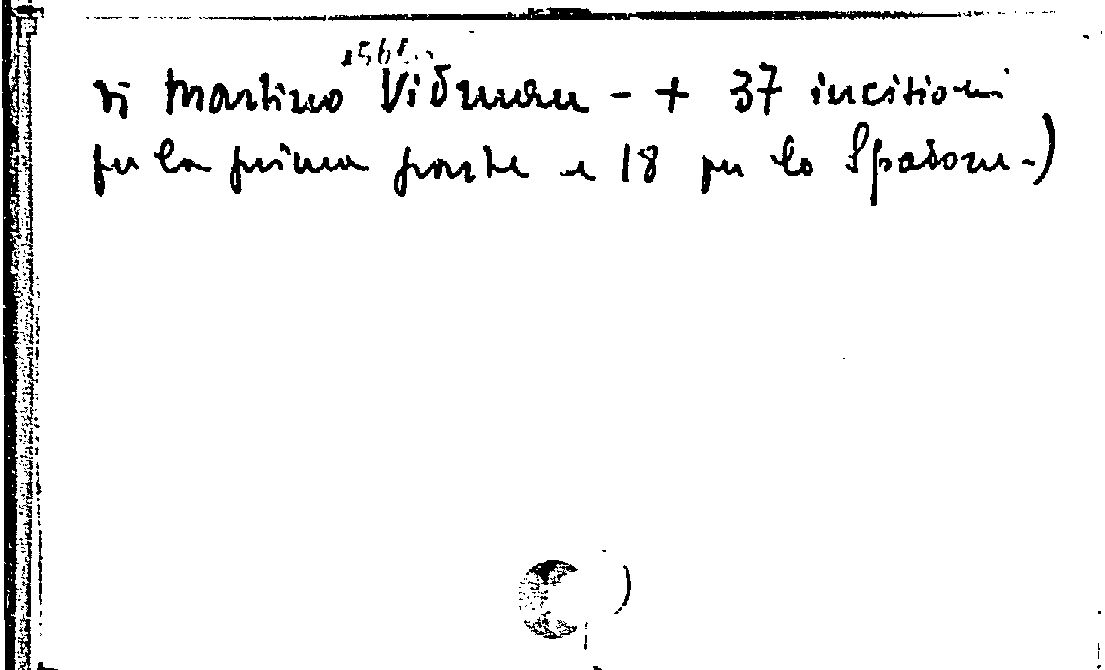 di Martino Vidman - + 37 incisioni
per la prima parte e 18 per lo Spadone -)